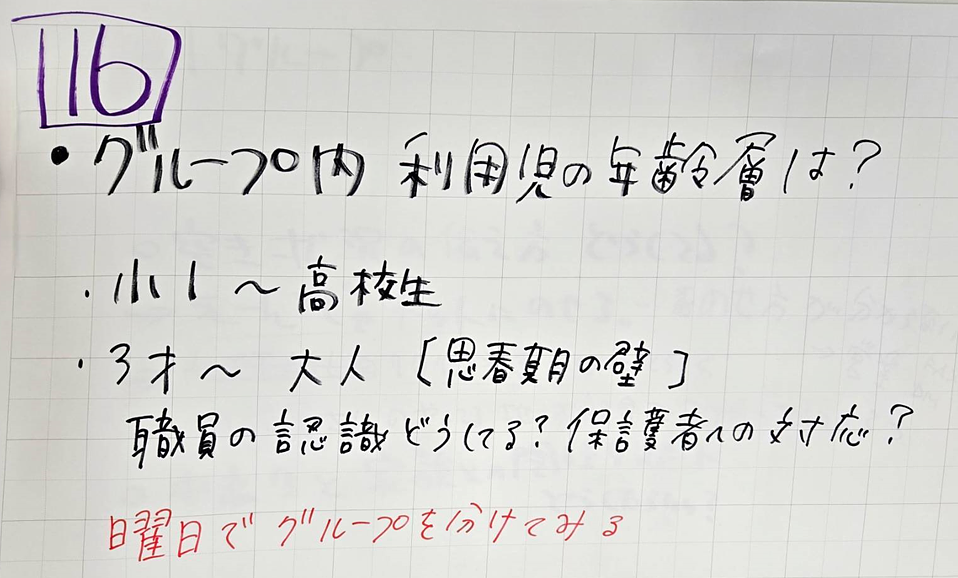 116
・グループ内 利用児の年齢層は?
・小1～高校生
・3才～ 大人 [思春期の壁]
職員の認識どうしてる? 保護者への対応?
曜日でグループを分けてみる